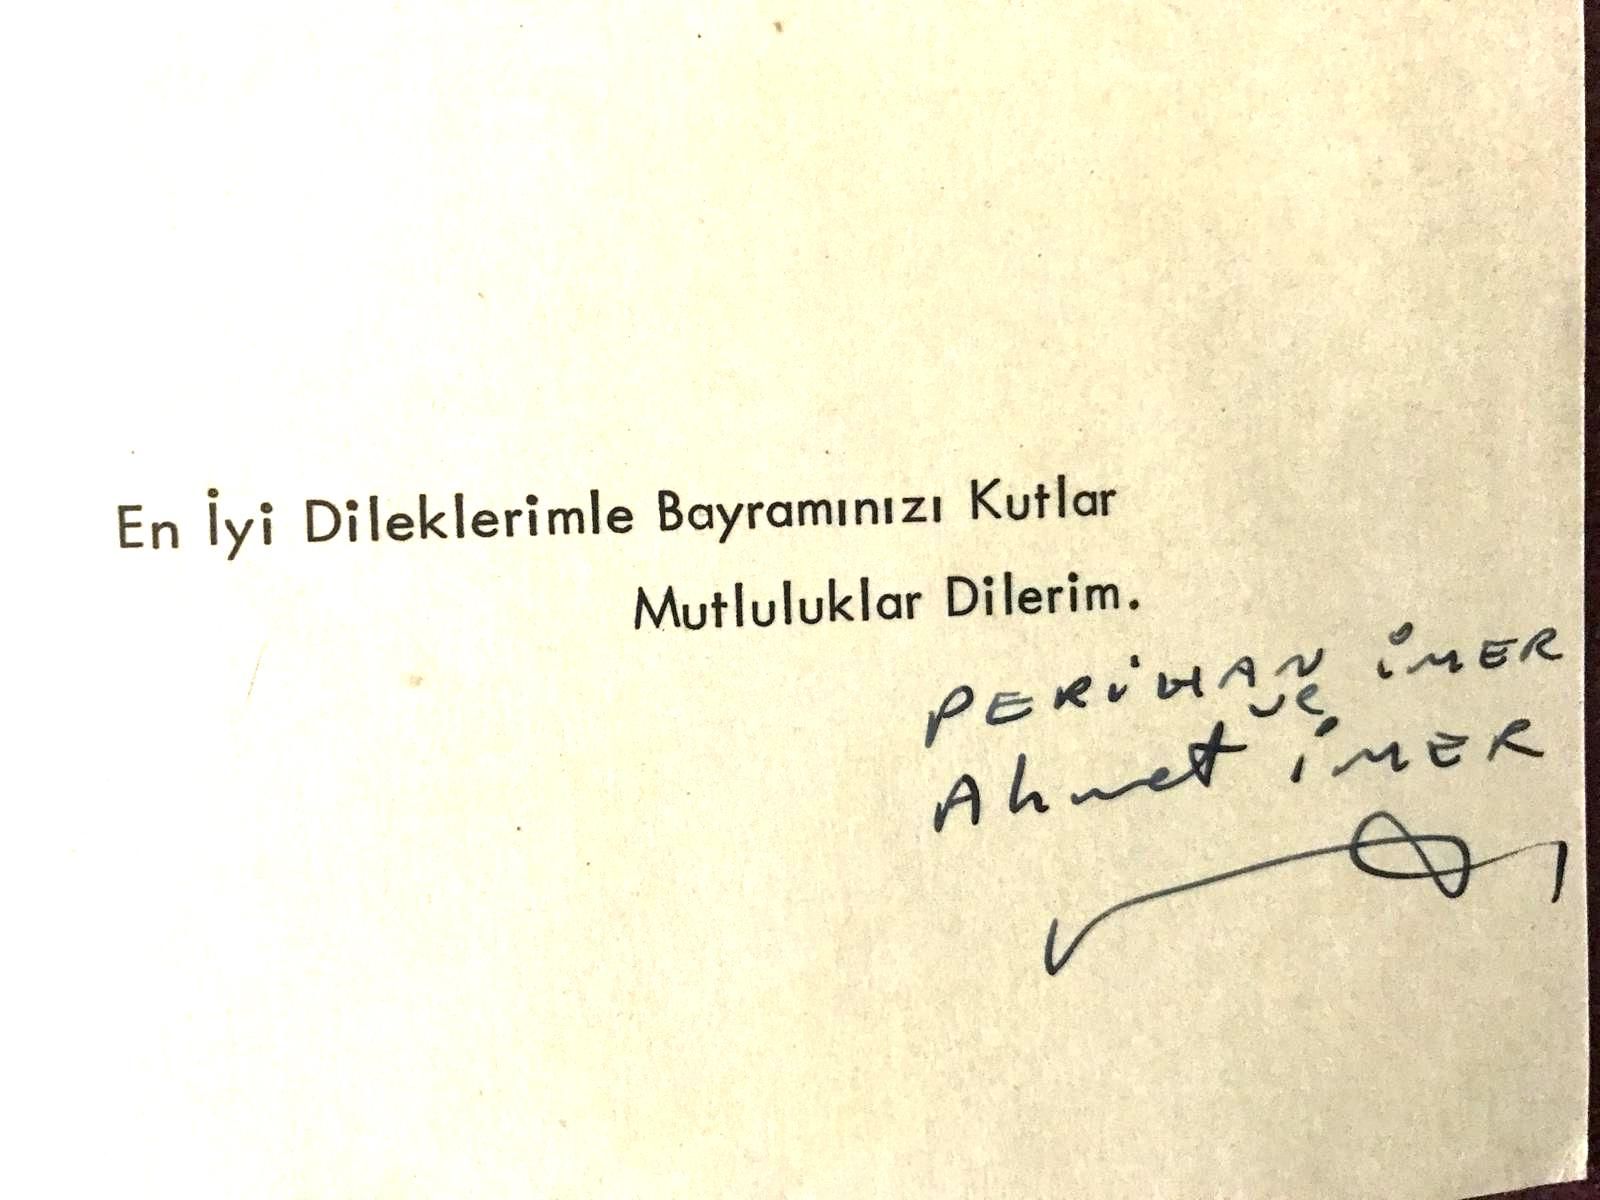 En İyi Dileklerimle Bayramınızı Kutlar
Mutluluklar Dilerim.
PERİHAN İMER
ve
Ahmet İMER